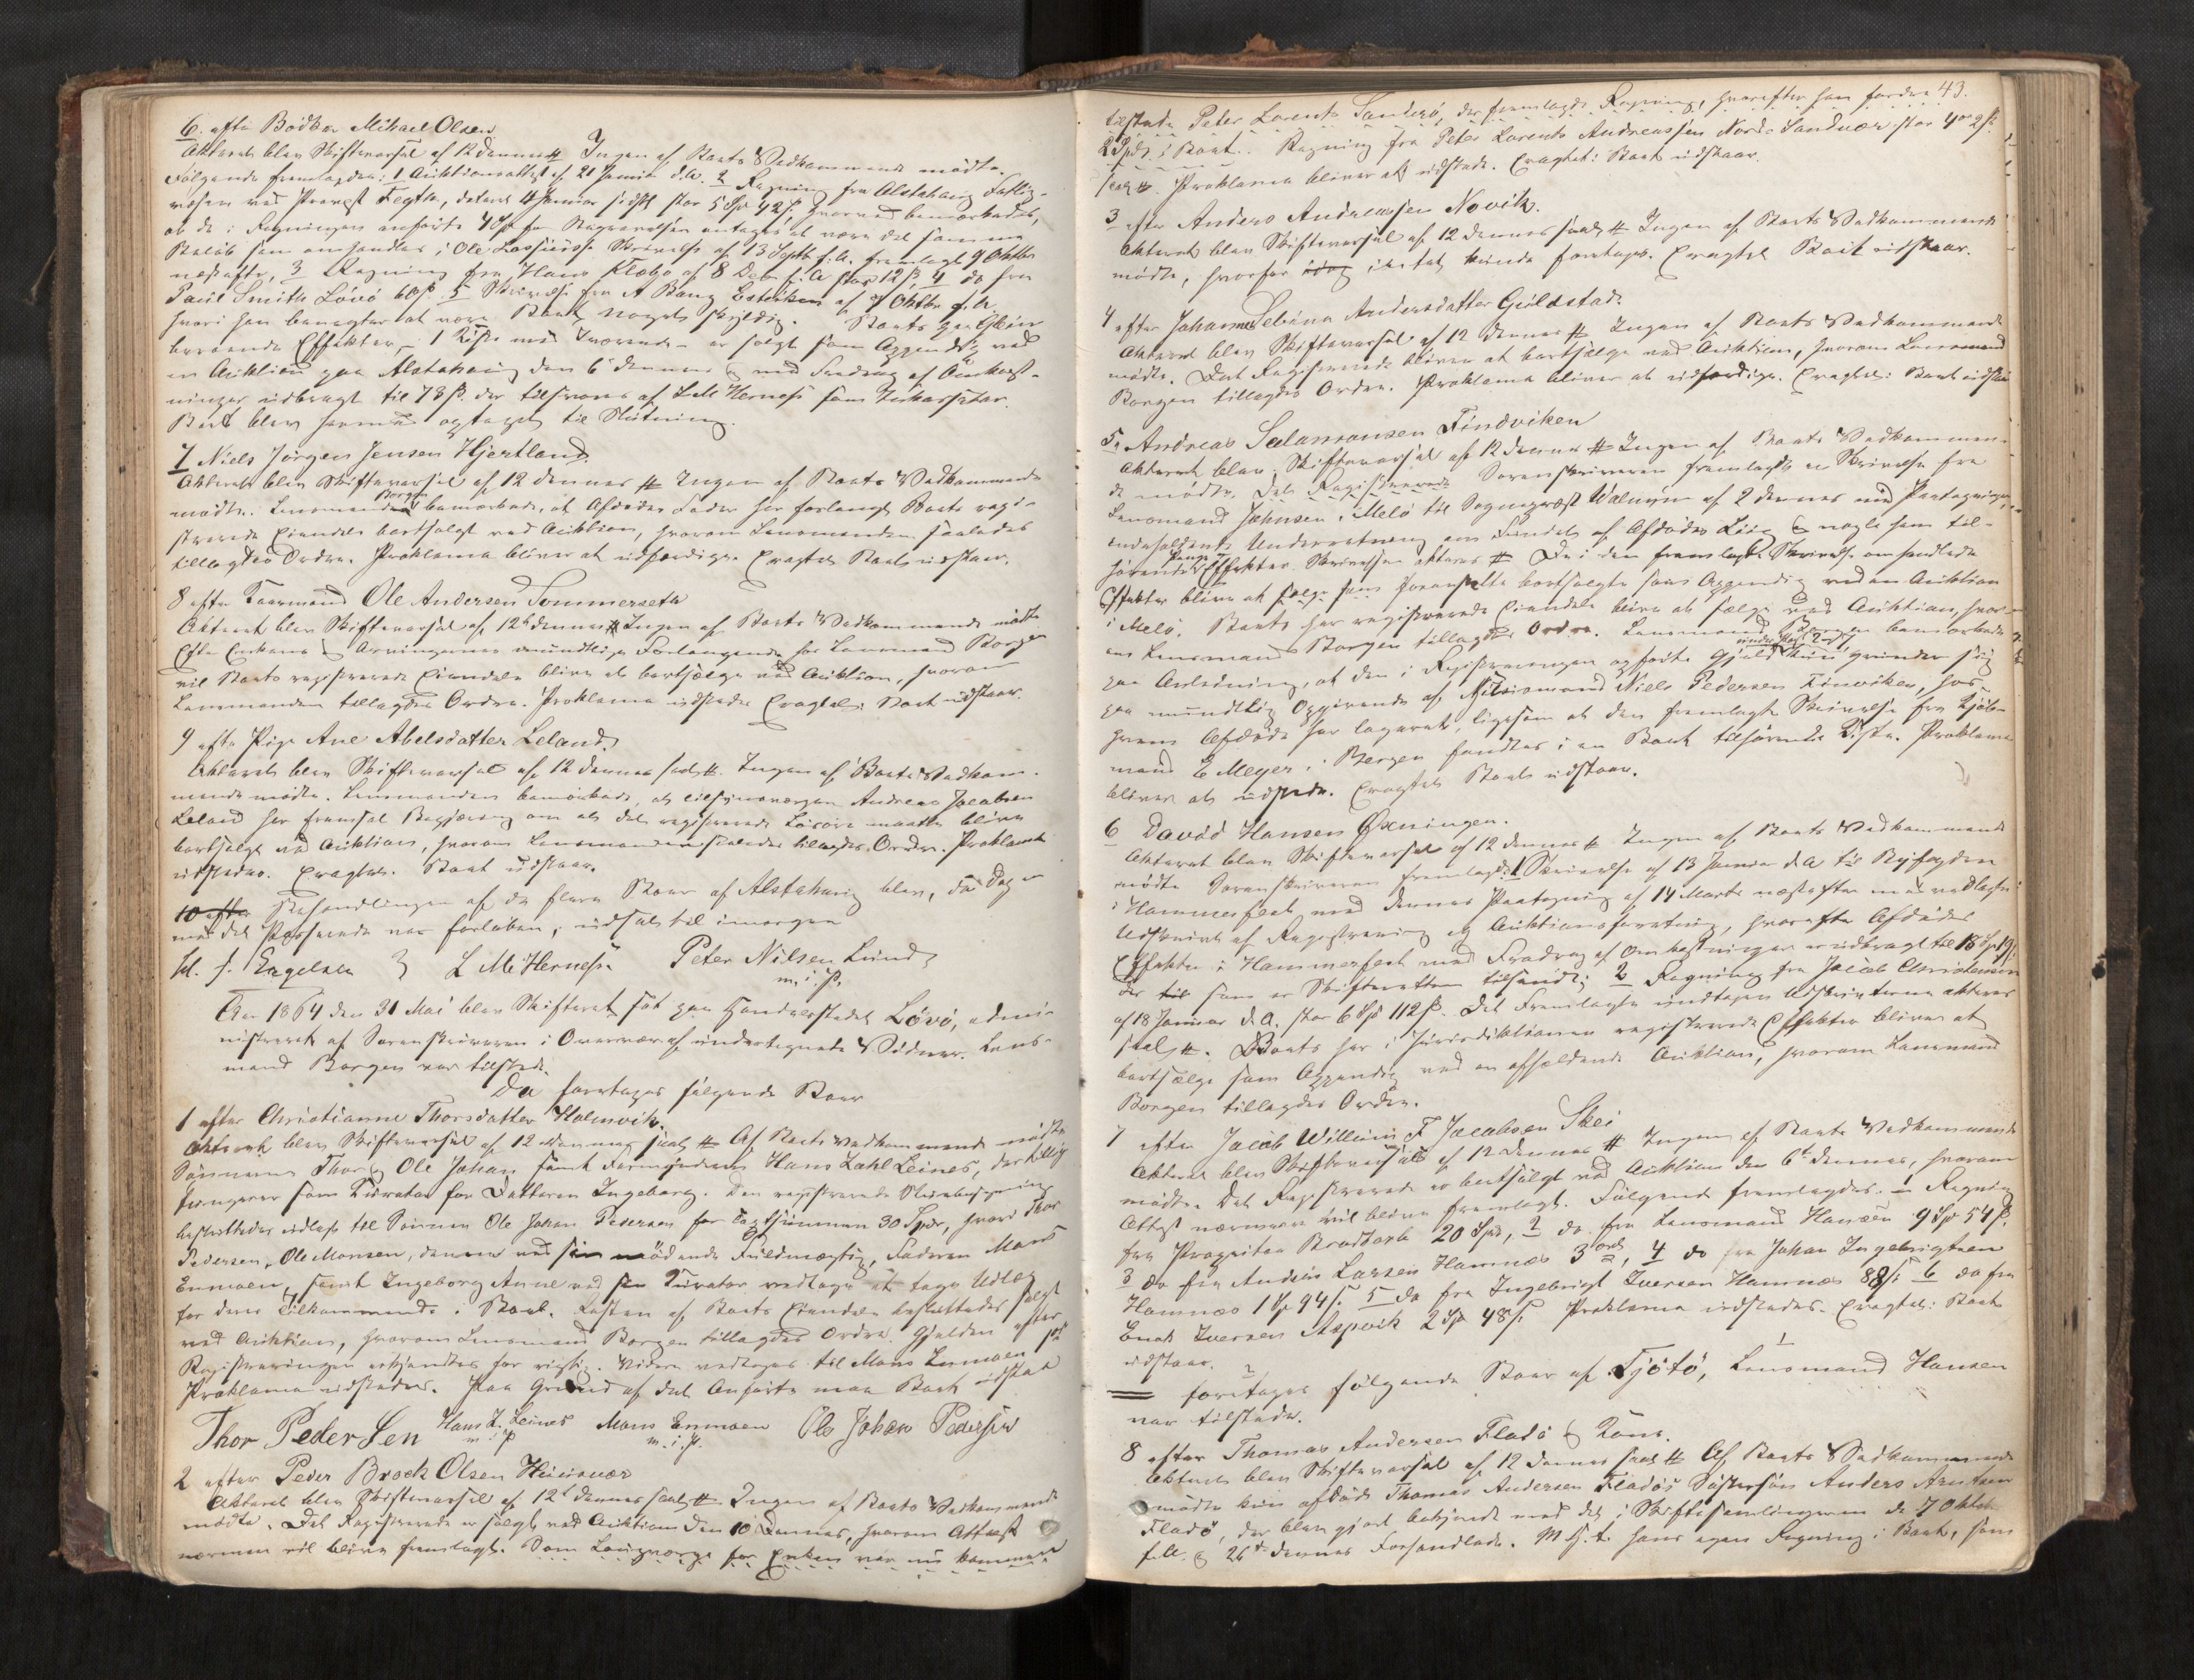 6. efter Bödker Mikael Olsen
Akteret blev Skiftevarsel af 12 dennes # Ingen af Boets Vedkommende mødte.
Følgende fremlagdes: 1 Auktionsattest af 21 Januar d.A. 2 Regning fra Alstahaug Fattig-
væsen ved Provst Fegth, dateret Januar sidstl. stor 5 Spd 42 ß, hvorved bemærkedes,
at de i Regningen anførte 4 Spd for Begravelsen antages at være det samme
Beløb som omhandles i Ole Lassesøns Skrivelse af 13 Septb f.A. fremlagt 9 Oktbr
næstefter, 3 Regning fra Hans Klæbo af 8 Debr f.A stor 12 ß, 4 do fra
Paul Smith Lövö 60 ß 5 Skrivelse fra A Bang af 7 Oktbr f.A.
hvori han benegter at være Boet noget skyldig. Boets
beroende Effekter - 1 Kiste med - er solgt som Appendix ved
en Auktion paa Alstahaug den 6 dennes og med Fradrag af Omkost-
ninger udbragt til 78 ß. der tilsvares af L M Herness som Inkassator.
Boet blev hermed optaget til Slutning.
7 Niels Jörgen Jensen Hjertland.
Akteret blev Skiftevarsel af 12 dennes # Ingen af Boets Vedkommende
mødte. Lensmanden Borgen bemærkede, at Afdødes Fader har forlangt Boets regi-
strerede Eiendele bortsolgt ved Auktion, hvorom Lensmanden saaledes
tillagdes Ordre. Proklama bliver at udfærdige. Eragtet: Boet udstaar.
8 efter Ole Andersen Sommerseth
Akteret blev Skiftevarsel af 12te dennes # Ingen af Boets Vedkommende mødte
Efter Enkens og Arvingernes mundtlige Forlangende hos Lensmand Borgen
vil Boets registrerede Eiendele blive at bortsælge ved Auktion, hvorom
Lensmanden tillagdes Ordre. Proklama udstedes Eragtet: Boet udstaar.
9 efter Pige Ane Abelsdatter Leland.
Akteret blev Skiftevarsel af 12 dennes saal. #. Ingen af Boets Vedkom-
mende mødte. Lensmanden bemærkede, at Tilsynsværgen Andreas Jacobsen
Leland har fremsat Begjæring om at det registrerede Løsøre maatte blive
bortsolgt ved Auktion, hvorom Lensmanden saaledes tillagdes Ordre. Proklama
udstedes. Eragtet. Boet udstaar.
10 efter Behandlingen af de flere Boer af Alstahaug blev, da Dagen
med det Passerede var forløben, udsat til imorgen
M. J. Engelsen L M Herness. Peter Nilsen Lund
m. i. P.
Aar 1864 den 31 Mai blev Skifteret sat paa Handelsstedet Lövö, admi-
nistreret af Sorenskriveren i Overvær af undertegnede Vidner. Lens-
mand Borgen var tilstede.
Da foretoges følgende Boer
1 efter Christianne Thorsdatter Holmvik.
Akteret blev Skiftevarsel af 12 dennes saal. # Af Boets Vedkommende mødte
Sønnerne Thor og Ole Johan samt Formynderen Hans Zahl Leines, der tillige
fungerer som Kurator for Datteren Ingeborg. Den registrerede
besluttedes udlagt til Sønnen Ole Johan Pedersen for Taxtsummen 30 Spd, hvori Thor
Pedersen, Ole Monsen, denne ved sin mødende Fuldmægtig, Faderen Mons
Enmoen, samt Ingeborg Anne ved sin Kurator vedtoge at tage Udlæg
for deres Tilkommende i Boet. Resten af Boets Eiendele besluttedes solgt
ved Auktion, hvorom Lensmand Borgen tillagdes Ordre. Gjelden efter
Registreringen erkjendtes for rigtig. Videre vedtoges til Mons Enmoen
Proklama udstedes. Paa Grund af det Anførte maa Boet udstaa
Thor Pedersen Hans Z. Leines Mons Enmoen Ole Johan Pedersen
m i P m. i. P.
2 efter Peder Brock Olsen
Akteret blev Skiftevarsel af 12te dennes saal. # Ingen af Boets Vedkommende
mødte. Det Registrerede er solgt ved Auktion den 10 dennes, hvorom Attest
nærmere vil blive fremlagt. Som Laugværge for Enken var nu kommen
43.
tilstede Peter Lorents Sandvær, der fremlagde Regning, hvorefter han fordrer
2 Spd. i Boet. Regning fra Peter Lorents Andreassen Nordre Sandvær stor 4
saal. #. Proklama bliver at udstede. Eragtet: Boet udstaar.
3 efter Anders Andreassen Novik.
Akteret blev Skiftevarsel af 12 dennes saal. # Ingen af Boets Vedkommende
mødte, hvorfor idag intet kunde foretages. Eragtet Boet udstaar.
4 efter Johanna Sebina Andersdatter Guldstad.
Akteret blev Skiftevarsel af 12 dennes # Ingen af Boets Vedkommende
mødte. Det Registrerede bliver at bortsælge ved Auktion, hvorom Lensmand
Borgen tillagdes Ordre. Proklama bliver at udfærdige. Eragtet: Boet udstaar
5. Andreas Salamonsen Findviken
Akteret blev Skiftevarsel af 12 dennes # Ingen af Boets Vedkommen-
de mødte. Det Registrerede Sorenskriveren fremlagde en Skrivelse fra
Lensmand Johnsen i Melö til Sogneprest Walnum af 2 dennes med Paategning,
indeholdende Underretning om Fundet af Afdødes Liig og nogle ham til-
hørende Effekter. Skrivelsen akteres # De i den fremlagte Skrivelse omhandlede
Effekter bliver at sælge som foranstalte bortsolgte som Appendix ved en Auktion
i Melö. Boets her registrerede Eiendele blive at sælge ved Auktion, hvor-
om Lensmand Borgen tillagdes Ordre. Lensmand Borgen bemærkede
paa Anledning, at den i Registreringen opførte Gjeld under Post 2 kun grunder sig
paa mundtlig Opgivende af Niels Pedersen Finviken, hos
hvem Afdøde har logeret, ligesom at den fremlagte Skrivelse fra Kjøb-
mand E Meyer i Bergen fandtes i en Boet tilhørende Kiste. Proklama
bliver at udstede. Eragtet Boet udstaar.
6 David Hansen Öxningen.
Akteret blev Skiftevarsel af 12 dennes #. Ingen af Boets Vedkommende
mødte Sorenskriveren fremlagde: 1 Skrivelse af 13 Januar d.A til Byfogden
i Hammerfest med dennes Paategning af 14 Marts næstefter med vedlagte
Udskrift af Registrering og Auktionsforretning, hvorefter Afdødes
Effekter i Hammerfest med Fradrag af Omkostninger er udbragt til 18 Spd 19 ß
der til som er Skifteretten tilsendt; 2 Regning fra Jacob Christensen
af 18 Januar d.A. stor 6 Spd 112 ß. Det Fremlagte undtagen Udskrifterne akteres
saal. #. Boets her i Jurisdiktionen registrerede Effekter bliver at
bortsælge som Appendix ved en afholdende Auktion, hvorom Lensmand
Borgen tillagdes Ordre.
7 efter Jacob Willum F Jacobsen Skei
Akteret blev Skiftevarsel af 12 dennes # Ingen af Boets Vedkommende
mødte. Det Registrerede er bortsolgt ved Auktion den 6te dennes, hvorom
Attest nærmere vil blive fremlagt. Følgende fremlagdes. 1 Regning
fra Proprietær Brodtkorb 20 Spd, 2 do fra Lensmand Hansen 9 Spd 54 ß.
3 do fra Anders Larsen Hamnæs 3 ort, 4 do fra Johan Ingebrigtsen
Hamnæs 1 Spd 94 ß. 5 do fra Ingebrigt Iversen Hamnæs 88 ß 6 do fra
Enok Iversen Aspvik 2 Spd 48 ß. Proklama udstedes. Eragtet: Boet
udstaar.
foretoges følgende Boer af Tjötö, Lensmand Hansen
var tilstede.
8 efter Thomas Andersen Flodö og Kone.
Akteret blev Skiftevarsel af 12 dennes saal # Af Boets Vedkommende
mødte kun afdøde Thomas Andersen Flodös Søstersøn Anders Arntsen
Flodö, der blev gjort bekjendt med det i Skiftesamlingerne de 7 Oktbr
f.A. og 26de dennes Forhandlede. M. H. t. hans egen Regning i Boet, som